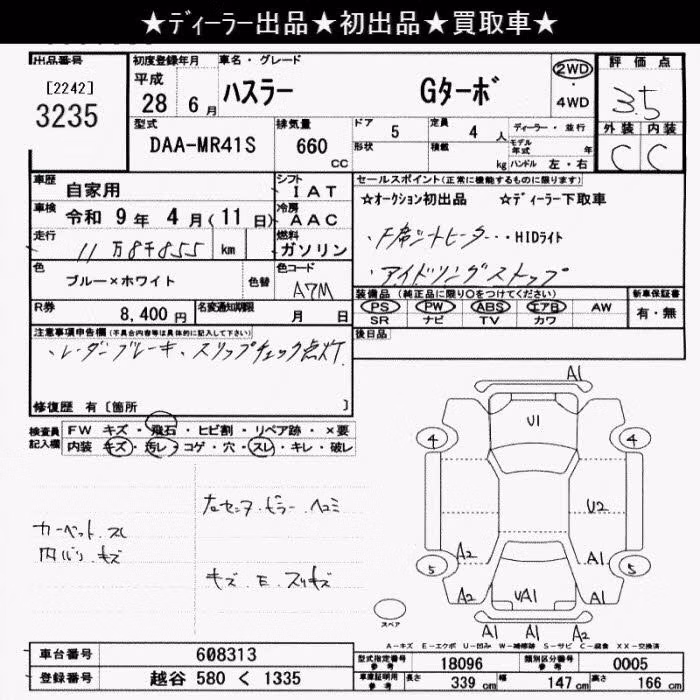 ★ディーラー出品★初出品★買取車★
出品番号
[2242]
3235
初度登録年月
平成
28 年 6 月
車名・グレード
ハスラー Gターボ
2WD
・
4WD
評価点
3.5
外装 内装
C C
型式
DAA-MR41S
排気量
660
CC
ドア 5
形状
定員 4 人
積載 kg
ディーラー・並行
モデル年式 年
ハンドル 左・右
車歴 自家用
シフト IAT
車検 令和 9 年 4 月(11 日)
冷房 AAC
走行 11万8千855 km
燃料 ガソリン
色 ブルー×ホワイト 色替
色コード A7M
R券 8,400 円
名変通知期限 月 日
セールスポイント(正常に機能するものに限ります)
☆オークション初出品 ☆ディーラー下取車
・F席シートヒーター・・HIDライト
・アイドリングストップ
装備品(純正品に限り○をつけてください)
PS PW ABS エアB AW
SR ナビ TV カワ
新車保証書
有・無
後日品
注意事項申告欄(不具合内容等は具体的に記入して下さい)
・レーダーブレーキ・スリップチェック点灯
修復歴 有〔箇所 〕
検査員記入欄
FW キズ・飛石・ヒビ割・リペア跡・×要
内装 キズ・汚レ・コゲ・穴・スレ・キレ・破レ
右センターピラー・ヘコミ
カーペット スレ
内バリ キズ
キズ・E・スリキズ
A1
U1
4 4
U2
A2 A1
5 5
A2 UA1 A2
A1 A1 A2
スペア
A-キズ E-エクボ U-凹み W-補修跡 S-サビ C-腐食 XX-交換済
車台番号 608313
登録番号 越谷 580 く 1335
型式指定番号 参考 18096
類別区分番号 参考 0005
車庫証明用 参考 長さ 339 cm 幅 147 cm 高さ 166 cm